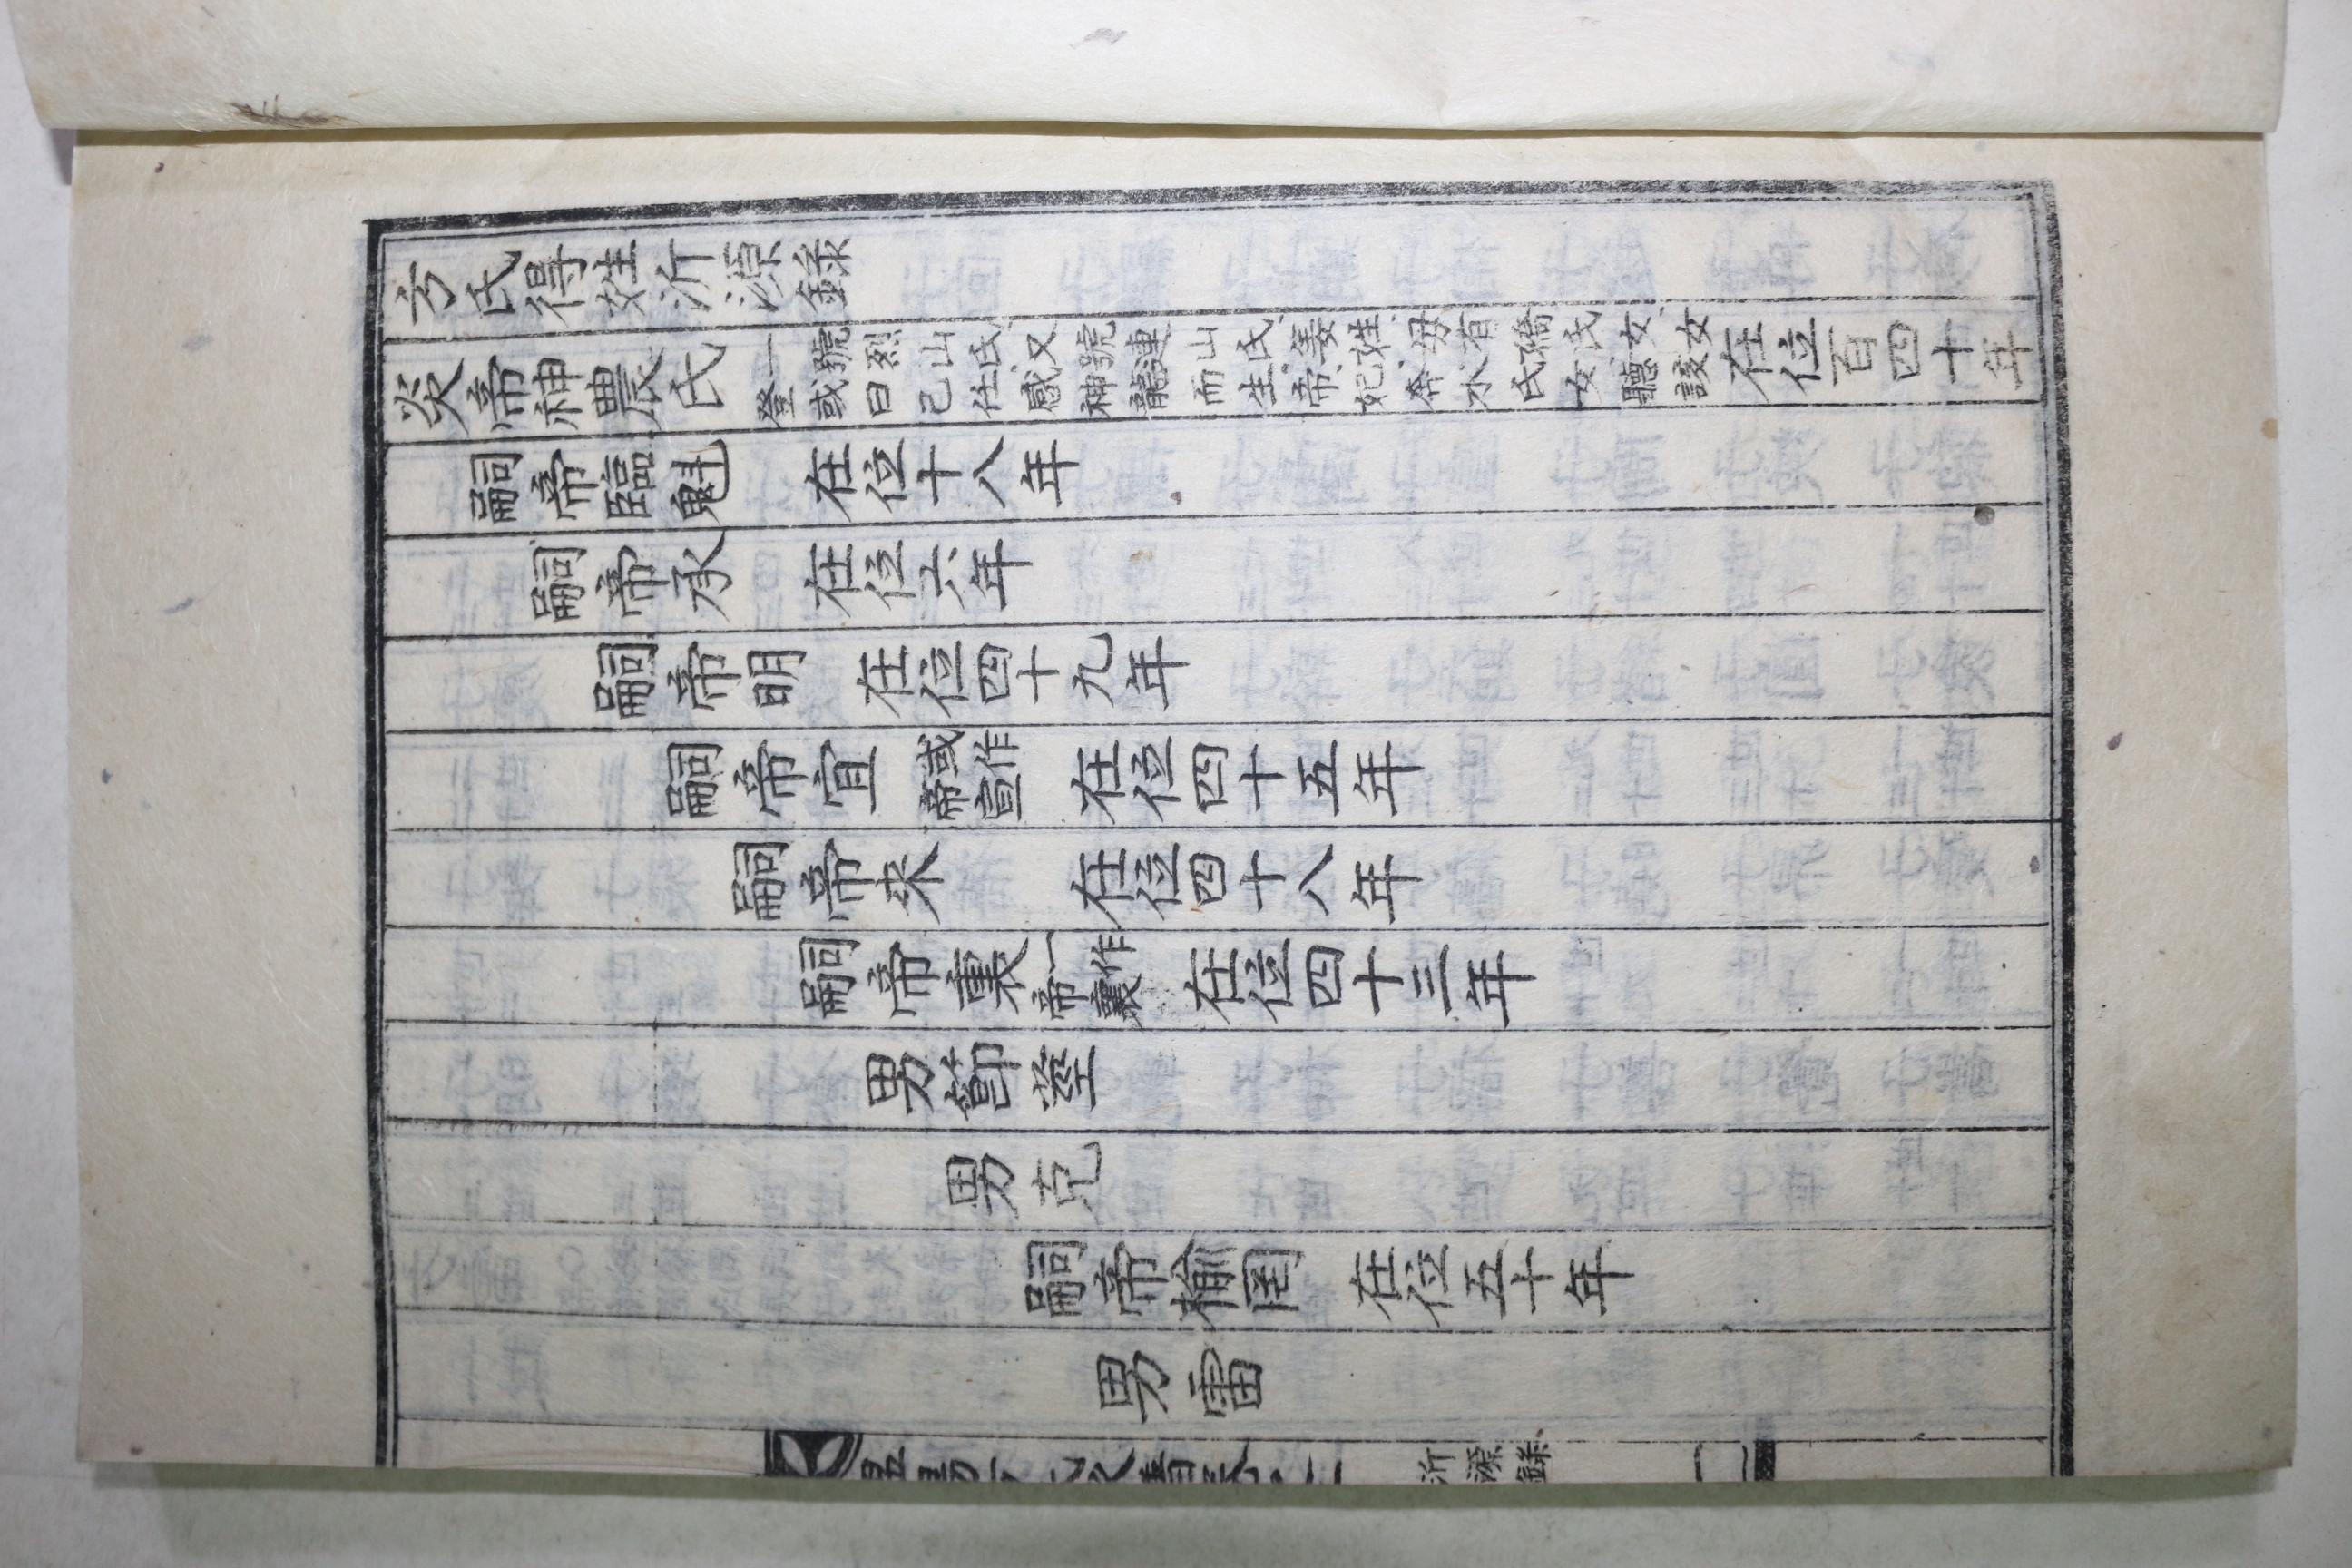 方氏得姓沂源錄
炎帝神農氏 一號烈山氏又號連山氏姜姓毋有蟜氏女女登或曰己任感神龍而生帝妃奔水氏女聽詙 在位百四十年
嗣帝臨魁 在位十八年
嗣帝承 在位六年
嗣帝明 在位四十九年
嗣帝宜 或作帝宣 在位四十五年
嗣帝来 在位四十八年
嗣帝裏 一作帝囊 在位四十三年
男節莖
男克
嗣帝榆罔 在位五十年
男雷
沂源錄